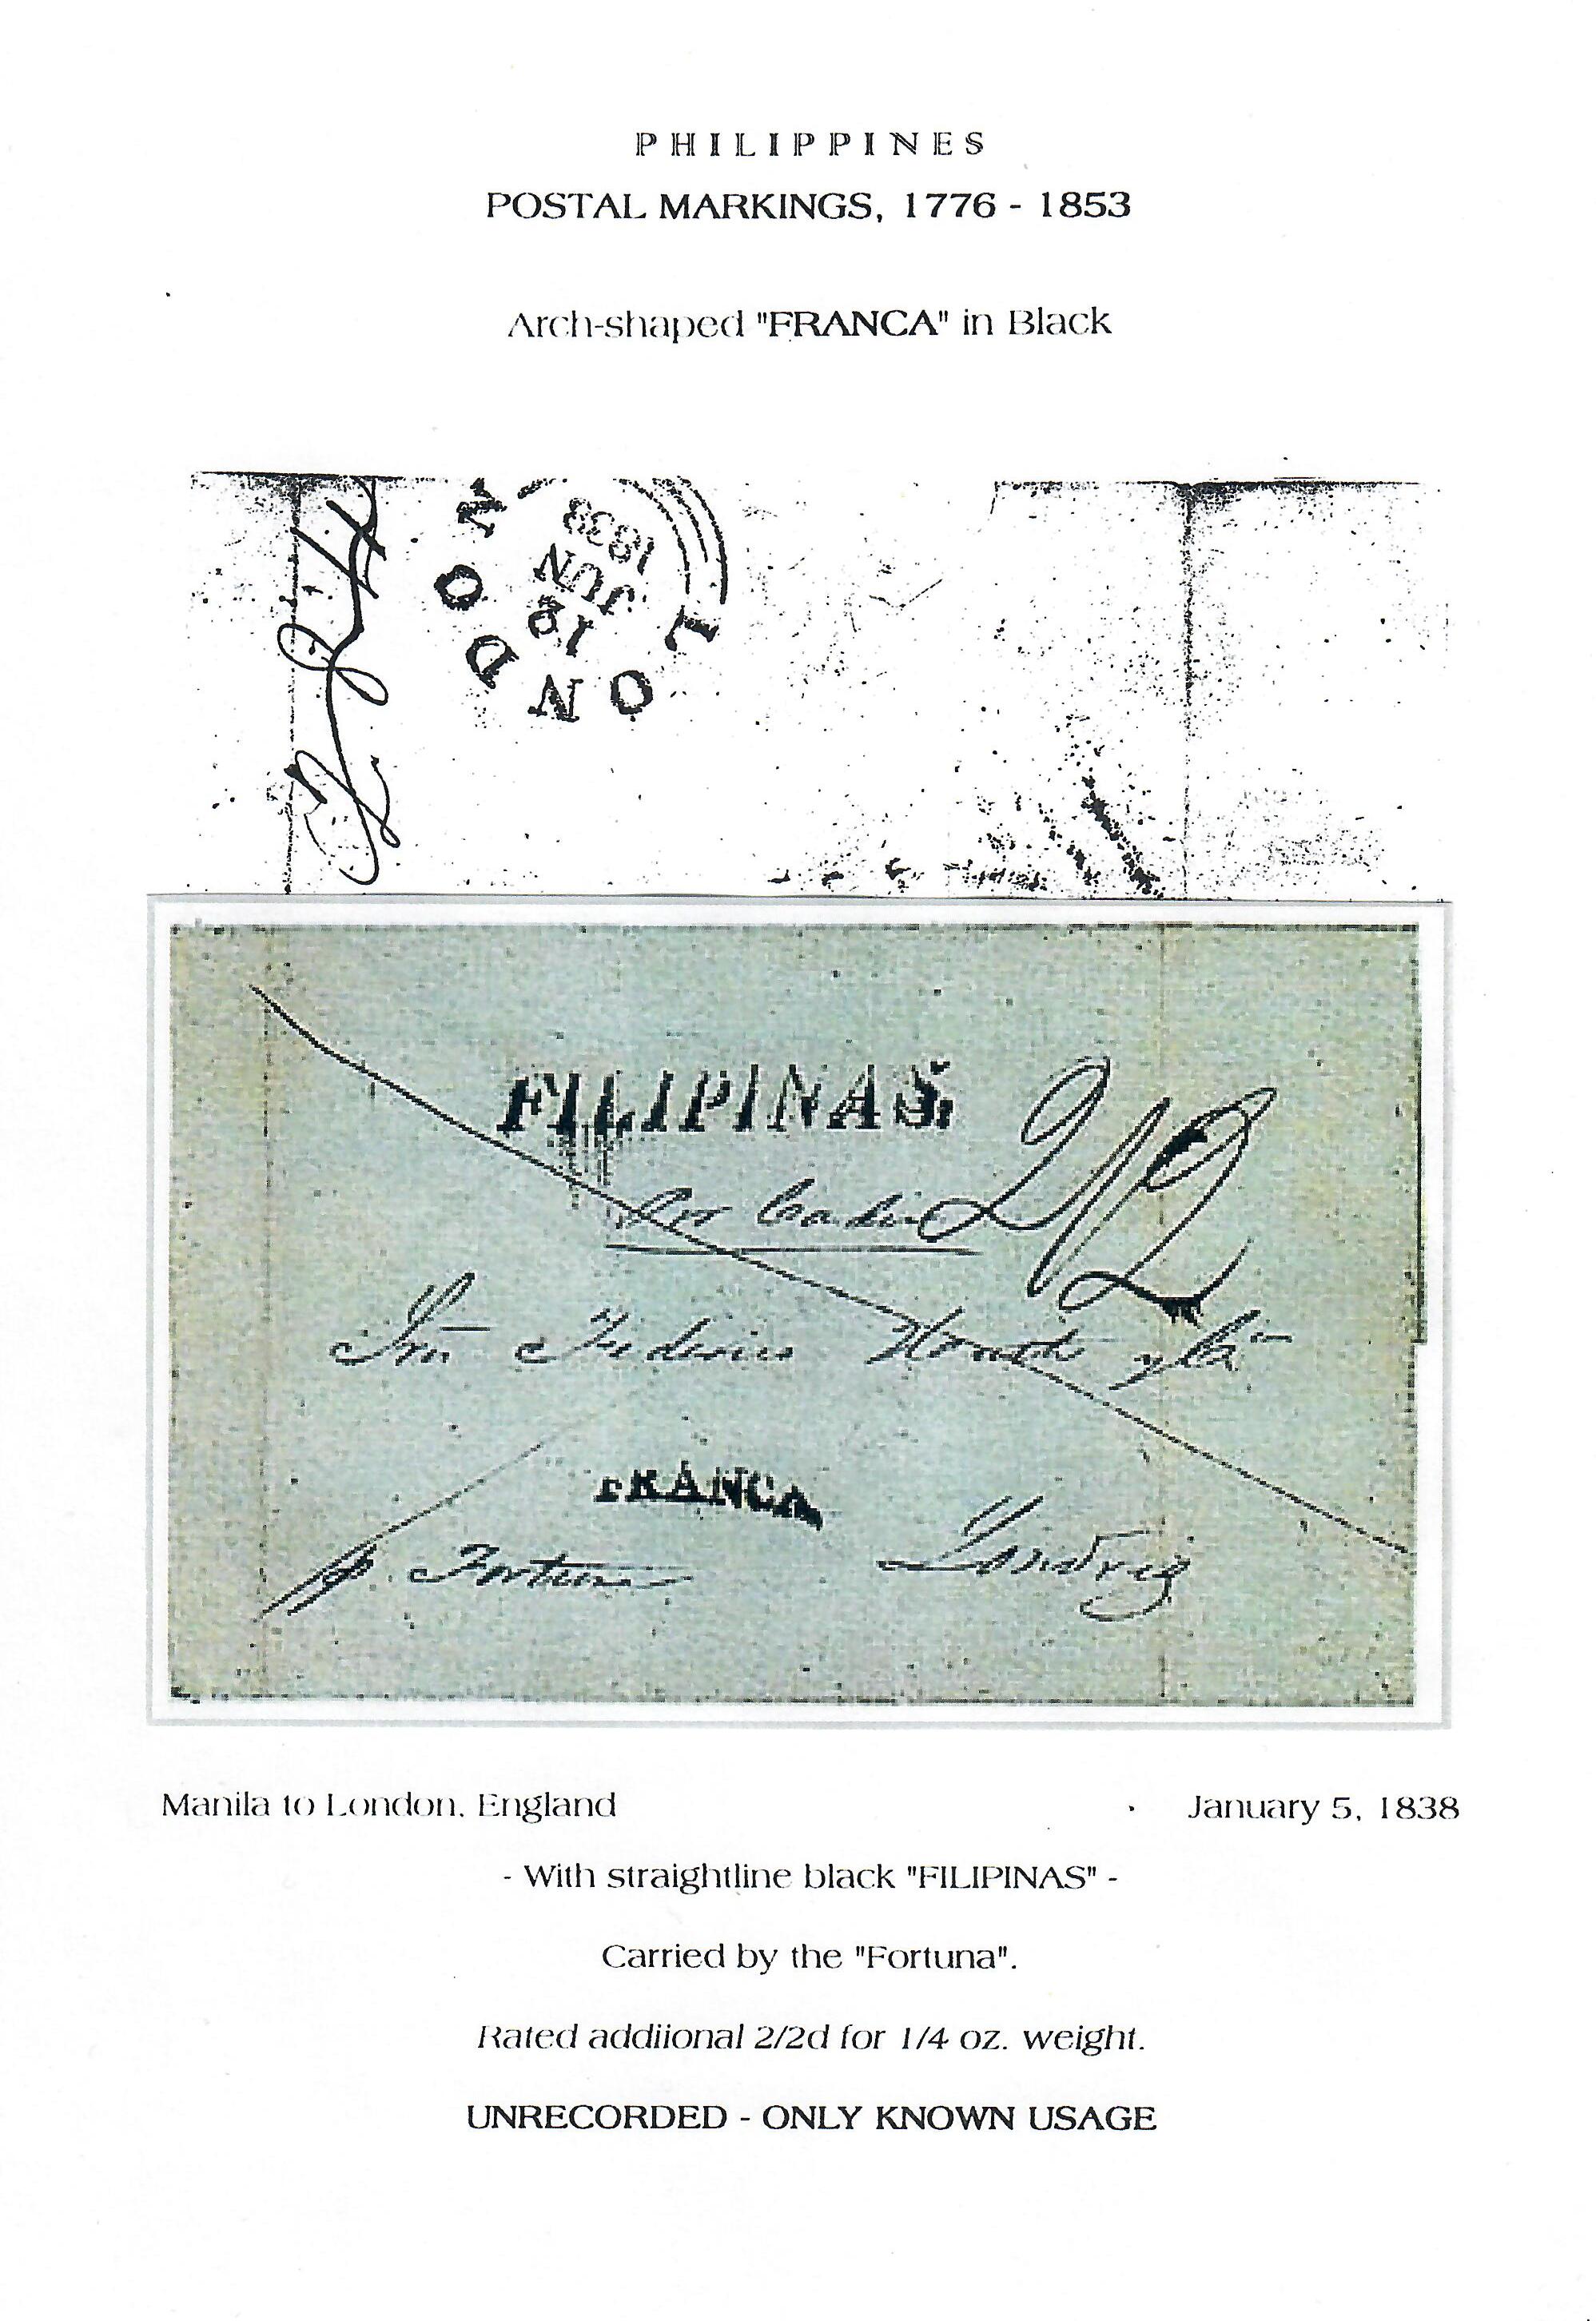 PHILIPPINES
POSTAL MARKINGS, 1776 - 1853
Arch-shaped "FRANCA" in Black
LONDON
12
JUN
1838
FILIPINAS
2/2
Por Cadiz
Federico
FRANCA
p. Fortuna
Londres
Manila to London, England
January 5, 1838
- With straightline black "FILIPINAS" -
Carried by the "Fortuna".
Rated addiional 2/2d for 1/4 oz. weight.
UNRECORDED - ONLY KNOWN USAGE